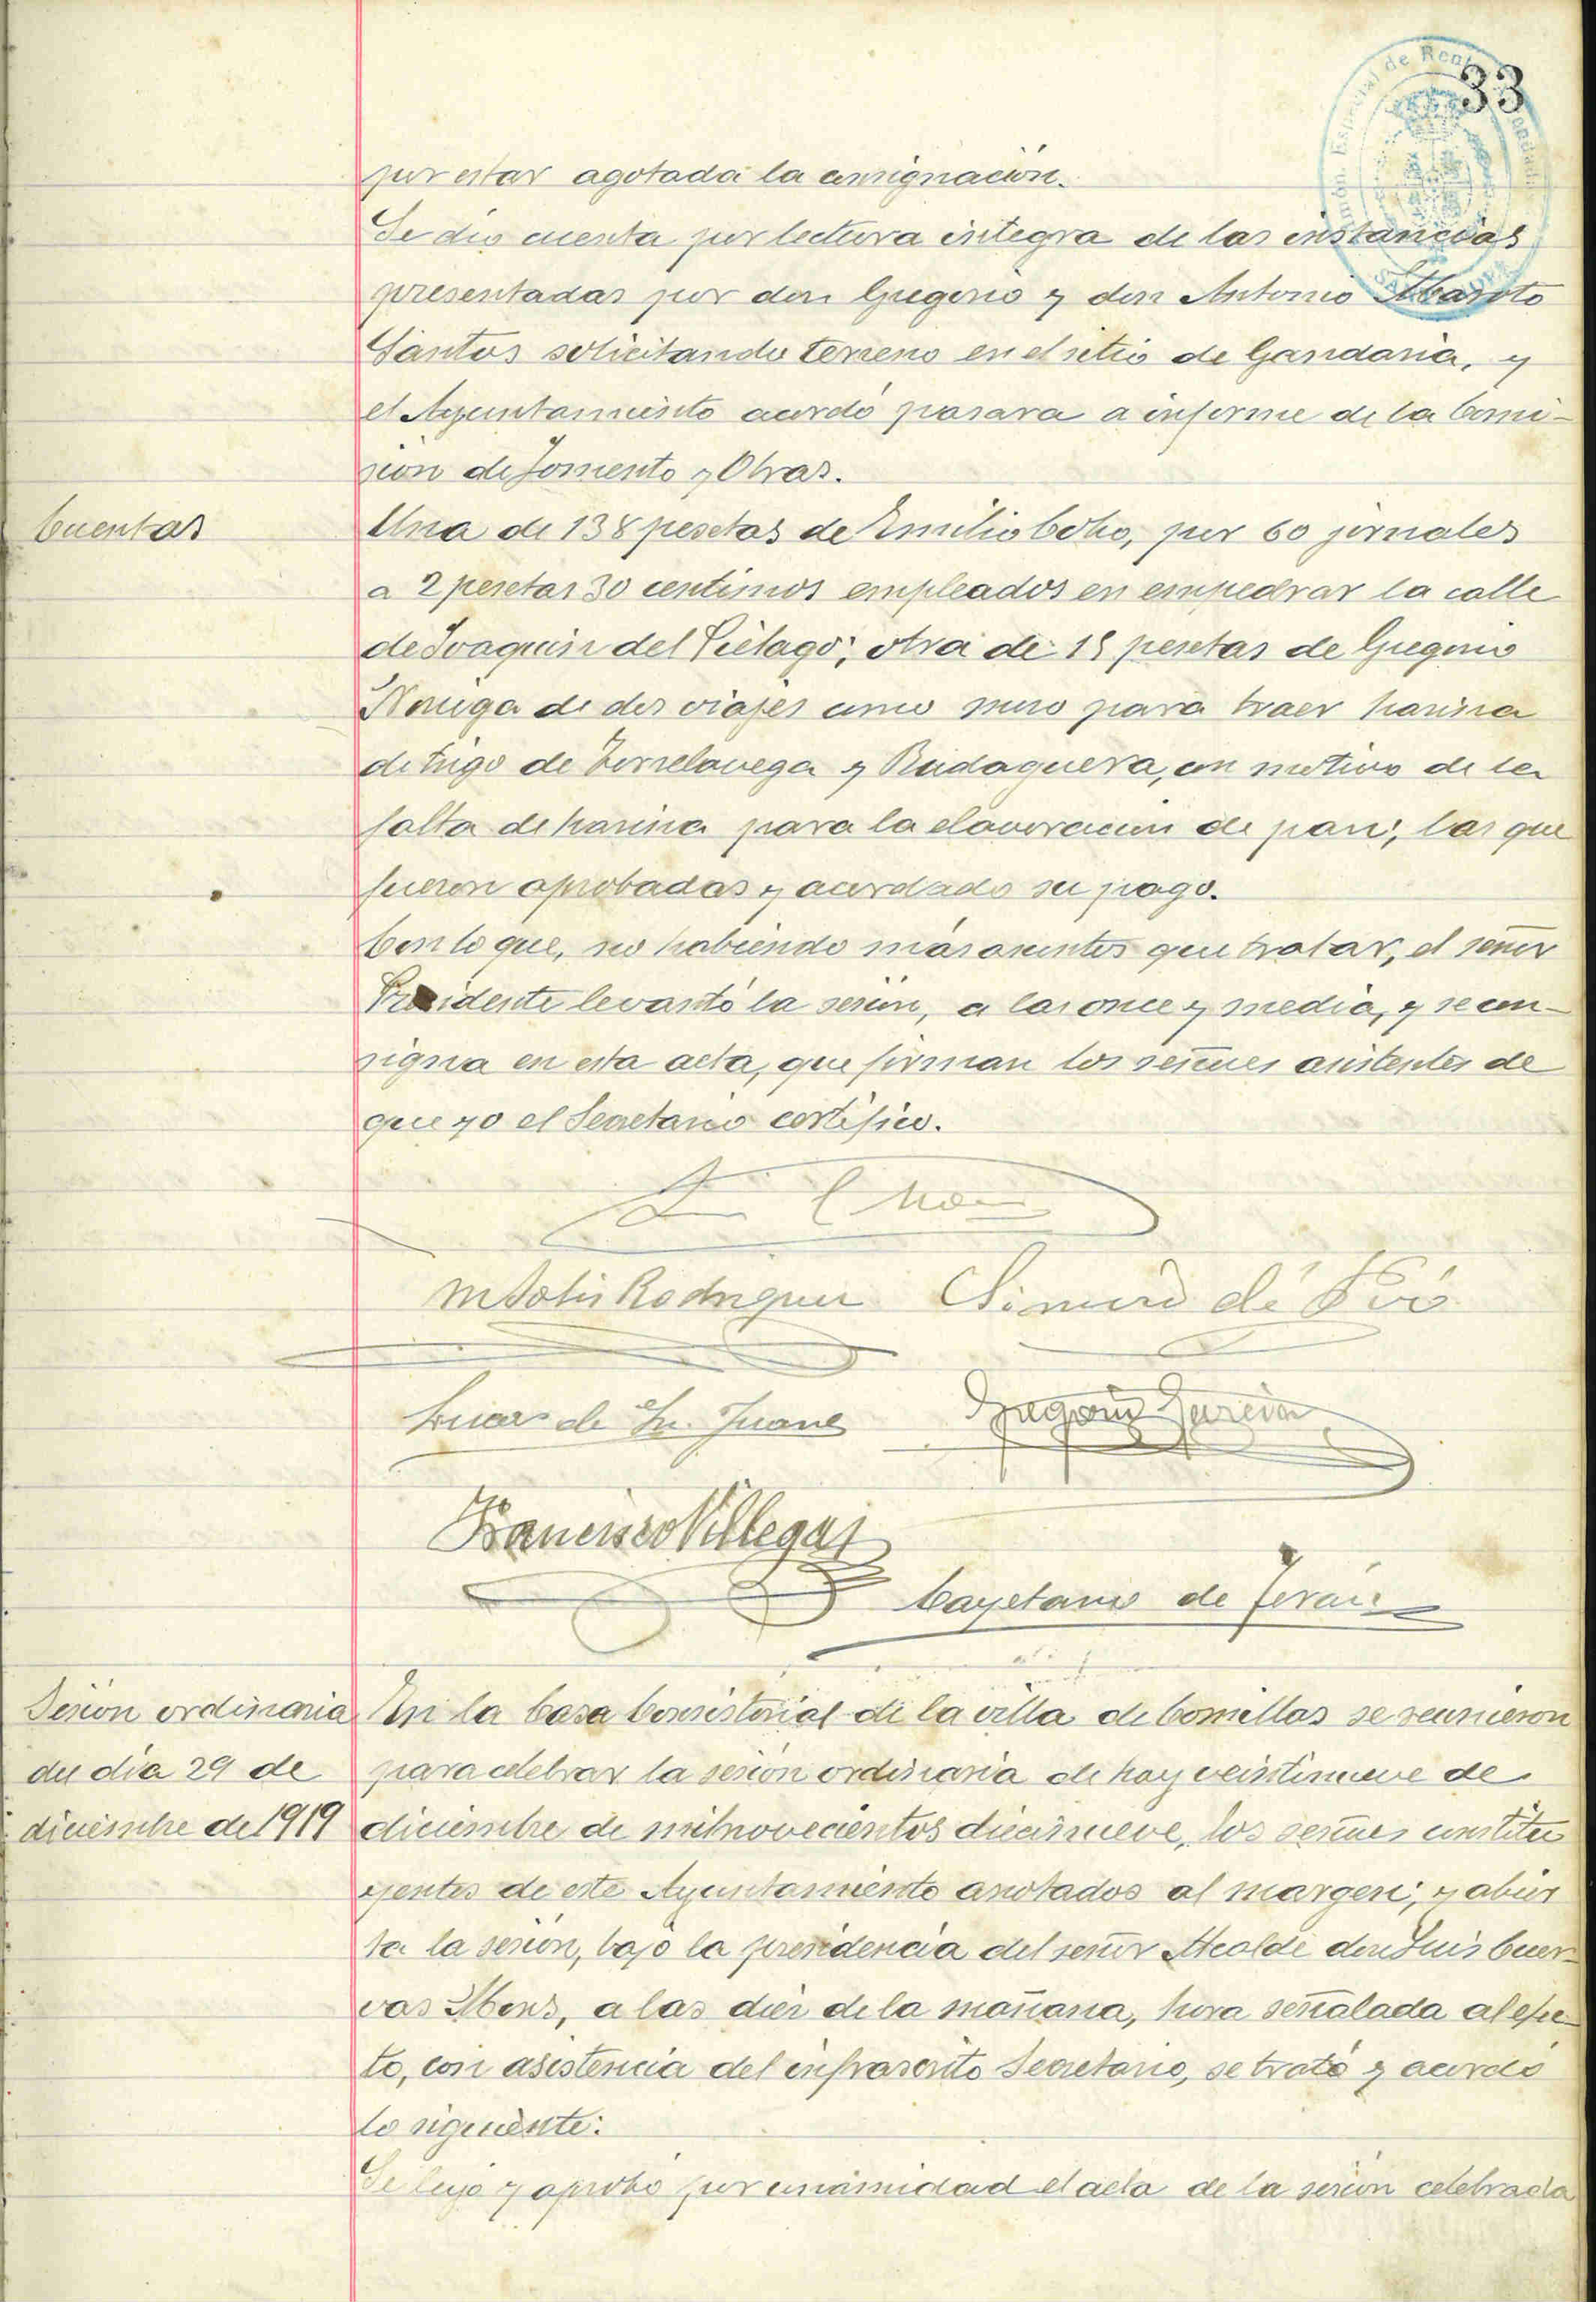 33
por estar agotada la consignación.
Se dió cuenta por lectura integra de las instancias
presentadas por don Gregorio y don Antonio Maroto
Santos solicitando terreno en el sitio de Gandaria, y
el Ayuntamiento acordó pasara a informe de la Comi-
sión de Fomento y Obras.
Cuentas
Una de 138 pesetas de Emilio Cobo, por 60 jornales
a 2 pesetas 30 centimos empleados en empedrar la calle
de Joaquin del Piélago; otra de 15 pesetas de Gregorio
Noriega de dos viajes como para traer harina
de trigo de Torrelavega y Rudaguera, con motivo de la
falta de harina para la elavoracion de pan; las que
fueron aprobadas y acordado su pago.
Con lo que, no habiendo más asuntos que tratar, el señor
Presidente levantó la sesión, a las once y media, y se con-
signa en esta acta, que firman los señores asistentes de
que yo el Secretario certifico.
M Solis Rodriguez
Lucas de Sn. Juan
Gregorio Garcia
Francisco Villegas
Cayetano de Terán
Sesión ordinaria
del día 29 de
diciembre de 1919
En la Casa Consistorial de la villa de Comillas se reunieron
para celebrar la sesión ordinaria de hoy veintinueve de
diciembre de mil novecientos diecinueve, los señores constitu
yentes de este Ayuntamiento anotados al margen; y abier
ta la sesión, bajo la presidencia del señor Alcalde don Luis Cuer-
vas Mons, a las diez de la mañana, hora señalada al efec-
to, con asistencia del infrascrito Secretario, se trató y acordó
lo siguiente:
Se leyó y aprobó por unanimidad el acta de la sesión celebrada